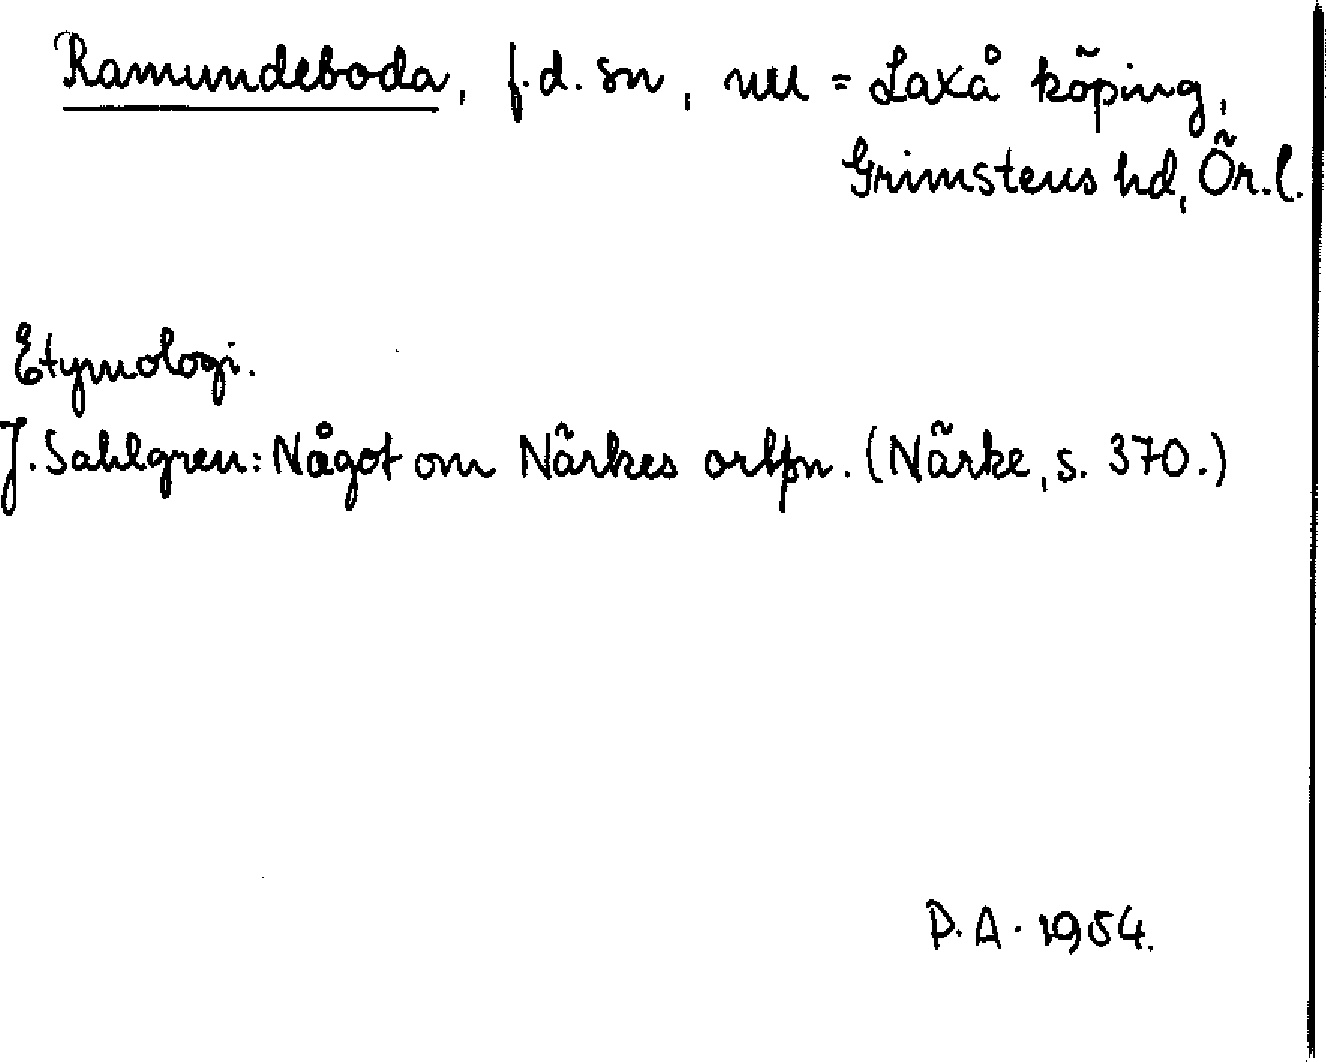 Ramundeboda, f.d. sn, nu = Laxå köping,
Grimstens hd, Ör.l.
Etymologi.
J. Sahlgren: Något om Närkes ortn. (Närke, s. 370.)
P.A. 1954.